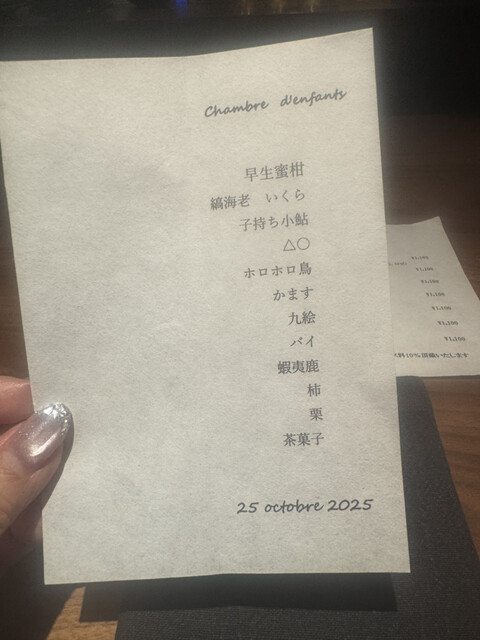 Chambre d'enfants
早生蜜柑
縞海老　いくら
子持ち小鮎
△○
ホロホロ鳥
かます
九絵
パイ
蝦夷鹿
柿
栗
茶菓子
25 octobre 2025
¥1,100
¥1,100
¥1,100
¥1,100
¥1,100
¥1,100
¥1,100
料10%頂戴いたします